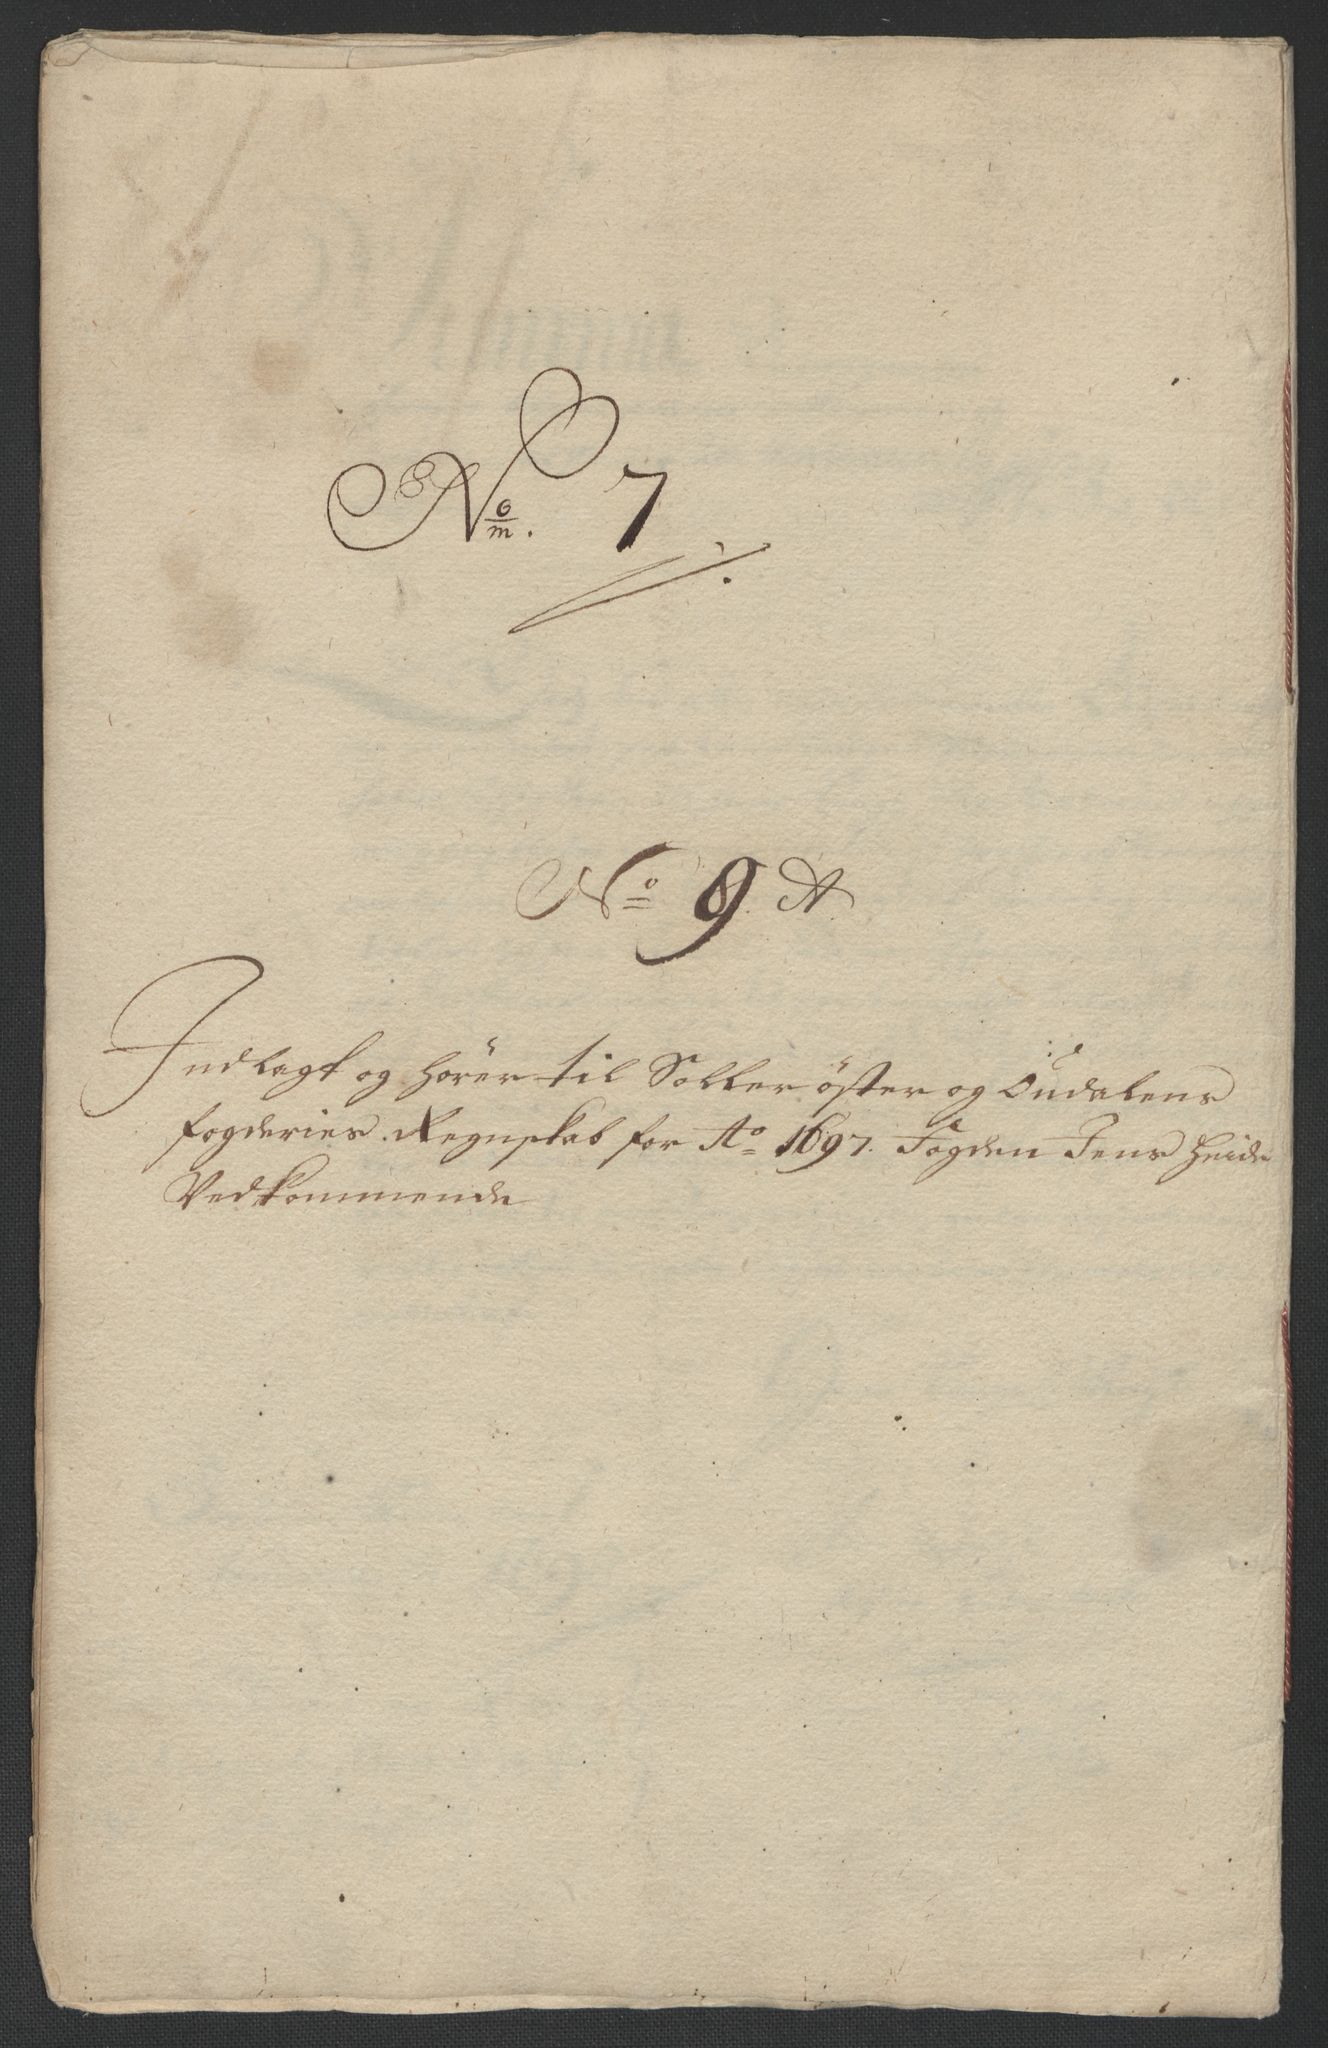 No/m. 7
No 9 A
Indlagt og hörer til Soller öster og Oudalens
fogderies Regnskab for Ao 1697. Fogden Jens Heide
Vedkommende